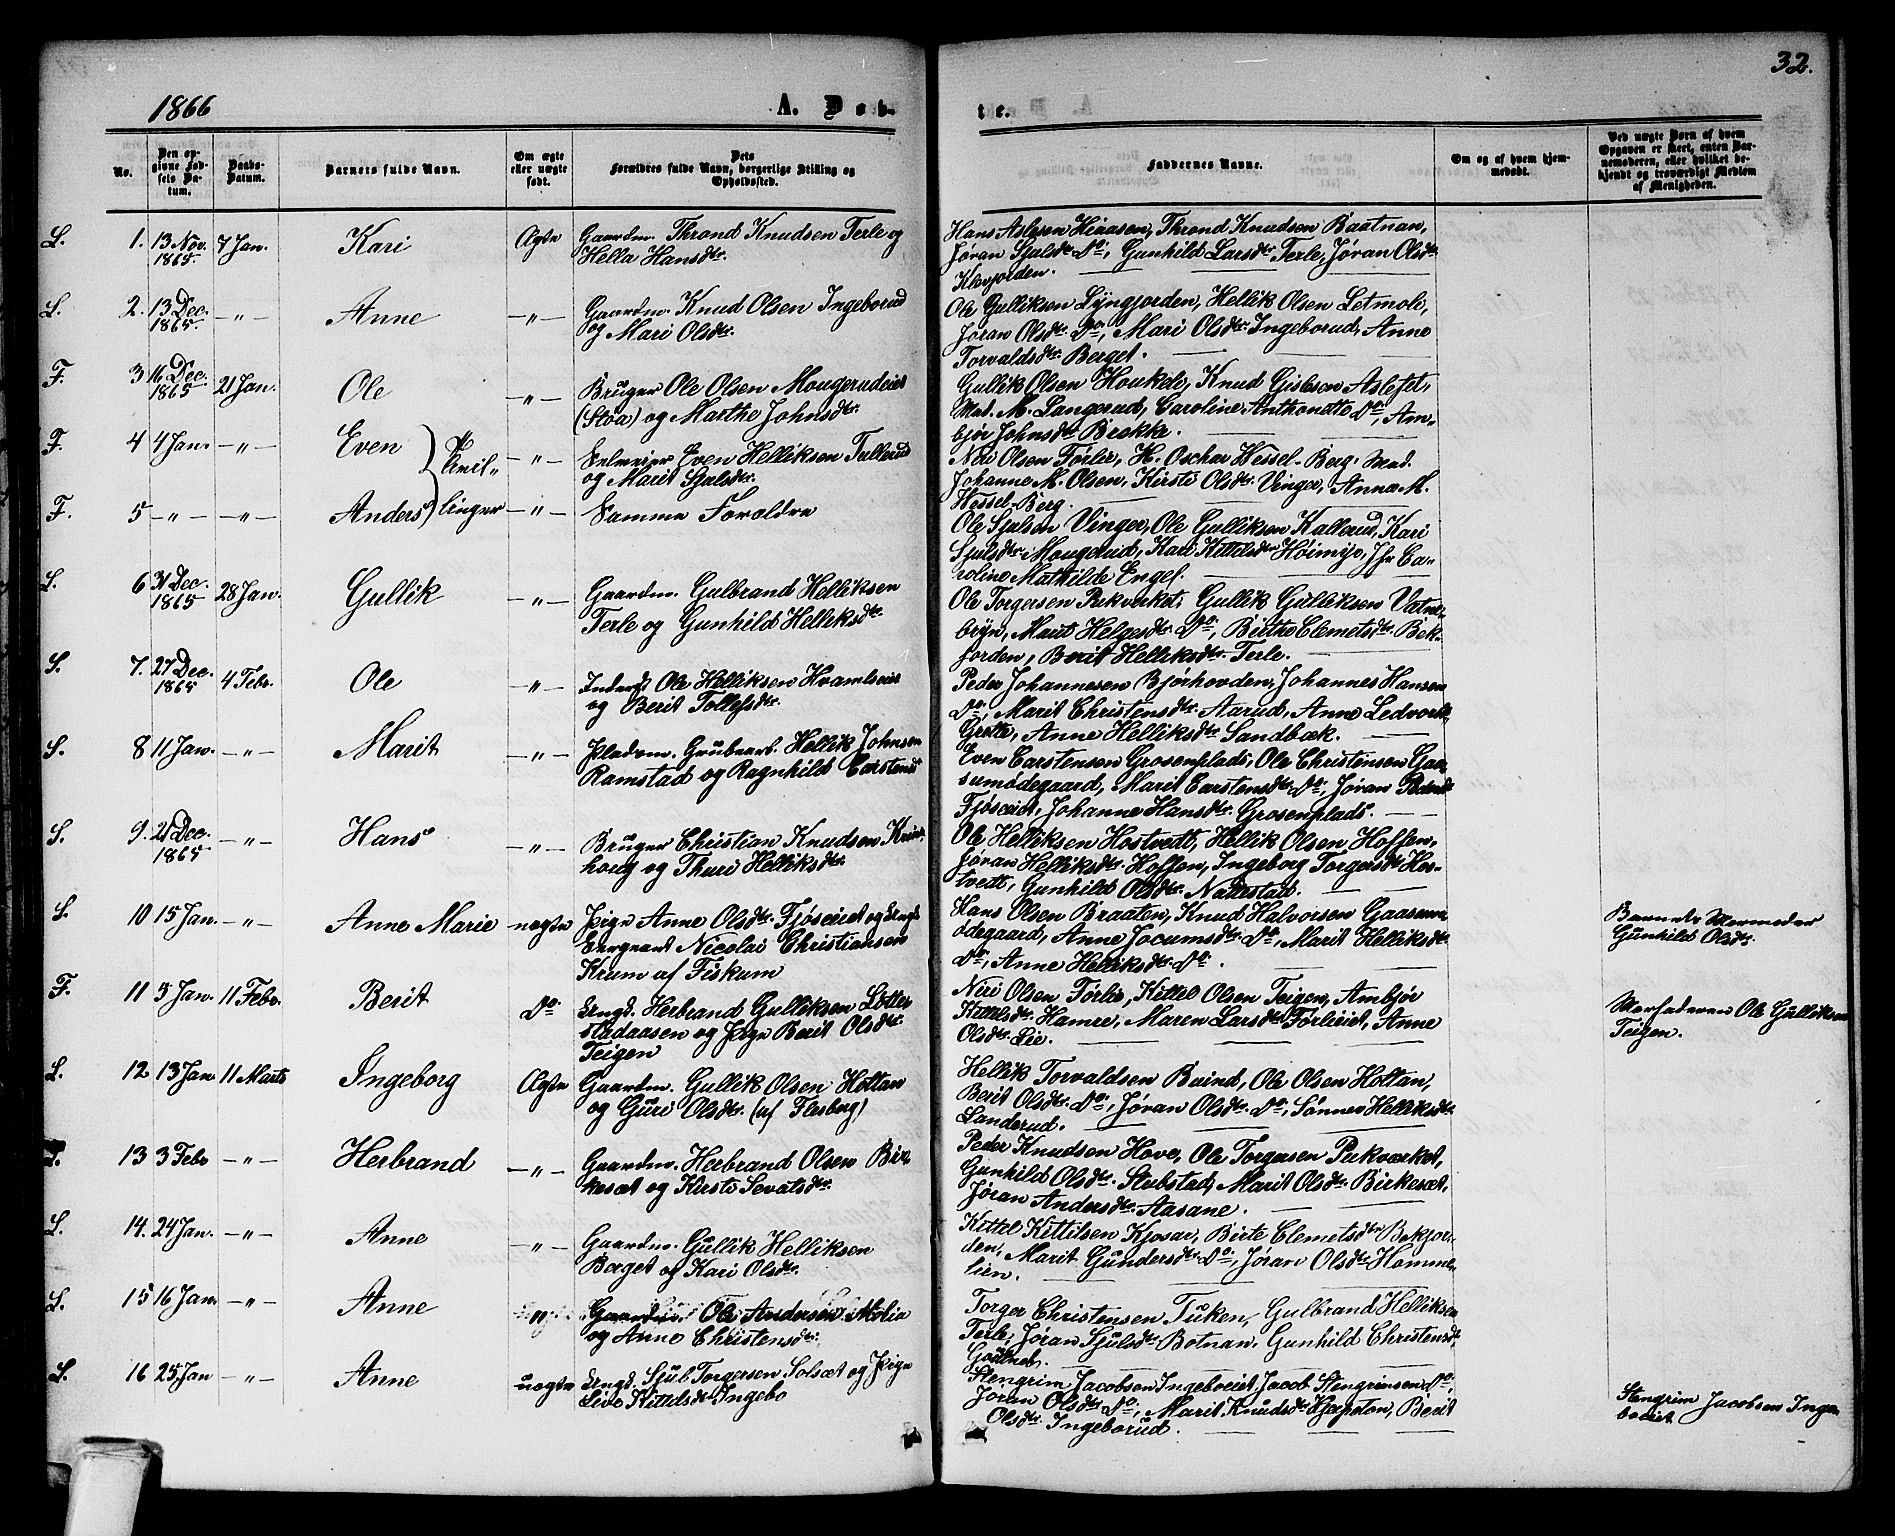 1866
A. Døb-
te.
32.
No.
Den op-
givne Fød-
sels Da-
tum.
Daabs-
Datum.
Barnets fulde Navn.
Om ægte
eller uægte
født.
Dets
Forældres fulde Navn, borgerlige Stilling og
Opholdsted.
Faddernes Navne.
Om og af hvem hjem-
medøbt.
Ved uægte Børn af hvem
Opgaven er skeet, enten Bar-
nemoderen, eller hvilket be-
kjendt og troværdigt Medlem
af Menigheden.
L. 1. 13 Nov. 1865. 7 Jan. Kari Ægte
Gaardm. Thrond Knudsen Terle og
Hella Hansdtr.
Hans Aslesen Thrond Knudsen Baatnan,
Jøran Sjulsdtr. Do, Gunhild Larsdtr. Terle, Jøran Olsdtr.
Klevjorden.
L. 2. 13 Dec. 1865. —"— Anne —"—
Gaardm. Knud Olsen Ingeborud
og Mari Olsdtr.
Ole Gulliksen Lyngjorden, Hellik Olsen Letmole,
Jøran Olsdtr. Do, Mari Olsdtr. Ingeborud, Anne
Torvaldsdtr. Berget.
F. 3 16 Dec. 1865 21 Jan. Ole —"—
Bruger Ole Olsen Mougerudeiet
(Stoa) og Marthe Johnsdtr.
Gullik Olsen Houkeli, Knud Gislesen Aslefet,
Mad. M. Langerud, Caroline Anthonette Do, Am-
bjør Johnsdtr. Brekke.
F. 4 4 Jan. —"— Even } Tvil- —"—
Even Helliksen Tullerud
og Marit Sjulsdtr.
Niri Olsen Førlie, H. Oschar Wessel-Berg, Mad.
Johanne M. Olsen, Kirsti Olsdtr. Vinger, Anna M.
Wessel-Berg.
F. 5 —"— —"— Anders } linger —"—
Samme Forældre
Ole Sjulsen Vinger, Ole Gulliksen Kallerud, Kari
Sjulsdtr. Mougerud, Kari Kittilsdtr. Høimyr, Jfr Ca-
roline Mathilde Engel.
L. 6 31 Dec. 1865 28 Jan. Gullik —"—
Gaardm. Gulbrand Helliksen
Terle og Gunhild Helliksdtr.
Ole Torgersen Pukverket, Gullik Gulliksen Vatne-
bryn, Marit Helgesdtr. Do, Birthe Clemetsdtr. Bek-
jorden, Berit Helliksdtr. Terle.
S. 7. 27 Dec. 1865 4 Febr. Ole —"—
Inderst Ole Helliksen Hvamseie
og Berit Tollefsdtr.
Peder Johannesen Bjørhovden, Johannes Hansen
Do, Marit Christensdtr. Aarud, Anne
Grette, Anne Helliksdtr. Sandbæk.
S. 8 11 Jan. —"— Marit —"—
Pladsm. Grubearb. Hellik Johnsen
Ramstad og Ragnhild Carstensdtr
Even Carstensen Grosenplads, Ole Christensen Gaa-
sumødegaard, Marit Carstensdtr. Do, Jøran
Fjøseiet, Johanne Hansdtr. Grosenplads.
S. 9. 21 Dec. 1865 —"— Hans —"—
Bruger Christian Knudsen
houg og Thuri Helliksdtr.
Ole Helliksen Hostvedt, Hellik Olsen Hoffen,
Jøran Helliksdtr. Hoffen, Ingeborg Torgersdtr. Hos-
tvedt, Gunhild Olsdtr. Nattestad.
S. 10 15 Jan. —"— Anne Marie uægte
Pige Anne Olsdtr. Fjøseiet og Ungk.
Sergeant Nicolai Christiansen
Krum af Fiskum
Hans Olsen Braaten, Knud Halvorsen Gaasum-
ødegaard, Anne Jocumsdtr. Do, Marit Helliksdtr.
Do, Anne Helliksdtr. Do.
Barnets Mormoder
Gunhild Olsdtr.
F. 11 5 Jan. 11 Febr. Berit Do
Ungk. Herbrand Gulliksen
og Pige Berit Olsdtr.
Teigen
Niri Olsen Førlie, Kittel Olsen Teigen, Ambjør
Kittilsdtr. Hamre, Maren Larsdtr. Førlieiet, Anne
Olsdtr. Lie.
Morfaderen Ole Gulliksen
Teigen.
L. 12 13 Jan 11 Marts Ingeborg Ægte
Gaardm. Gullik Olsen Hottan
og Guri Olsdtr. (af Flesberg)
Hellik Torvaldsen Buind, Ole Olsen Hottan,
Berit Olsdtr. Do, Jøran Olsdtr. Do, Sønnev Helliksdtr.
Landerud.
L. 13 3 Febr —"— Herbrand —"—
Gaardm. Herbrand Olsen Bir-
kesæt og Kirsti Sevatsdtr.
Peder Knudsen Hove, Ole Torgersen Pukværket,
Gunhild Olsdtr. Stubstad, Marit Olsdtr. Birkesæt,
Jøran Andersdtr. Aasane.
L. 14. 24 Jan. —"— Anne —"—
Gaardm. Gullik Helliksen
Berget og Kari Olsdtr.
Kittel Kittilsen Kjosar, Birte Clemetsdtr Bekjor-
den, Marit Gundersdtr. Do, Jøran Olsdtr. Hamme-
lien.
L. 15 16 Jan. —"— Anne "
Gaardm. Ole Andersen Molia
og Anne Christensdtr.
Torger Christensen Tuken, Gulbrand Helliksen
Terle, Jøran Sjulsdtr. Botnan, Gunhild Christensdtr.
L. 16 25 Jan —"— Anne uægte
Ungk. Sjul Torgersen Solsæt og Pige
Live Kittilsdtr. Ingebo
Stengrim Jacobsen Ingeboeiet, Jacob Stengrimsen Do,
Jøran Olsdtr. Do, Marit Knudsdtr. Berit
Olsdtr. Ingeborud.
Stengrim Jacobsen Inge-
boeiet